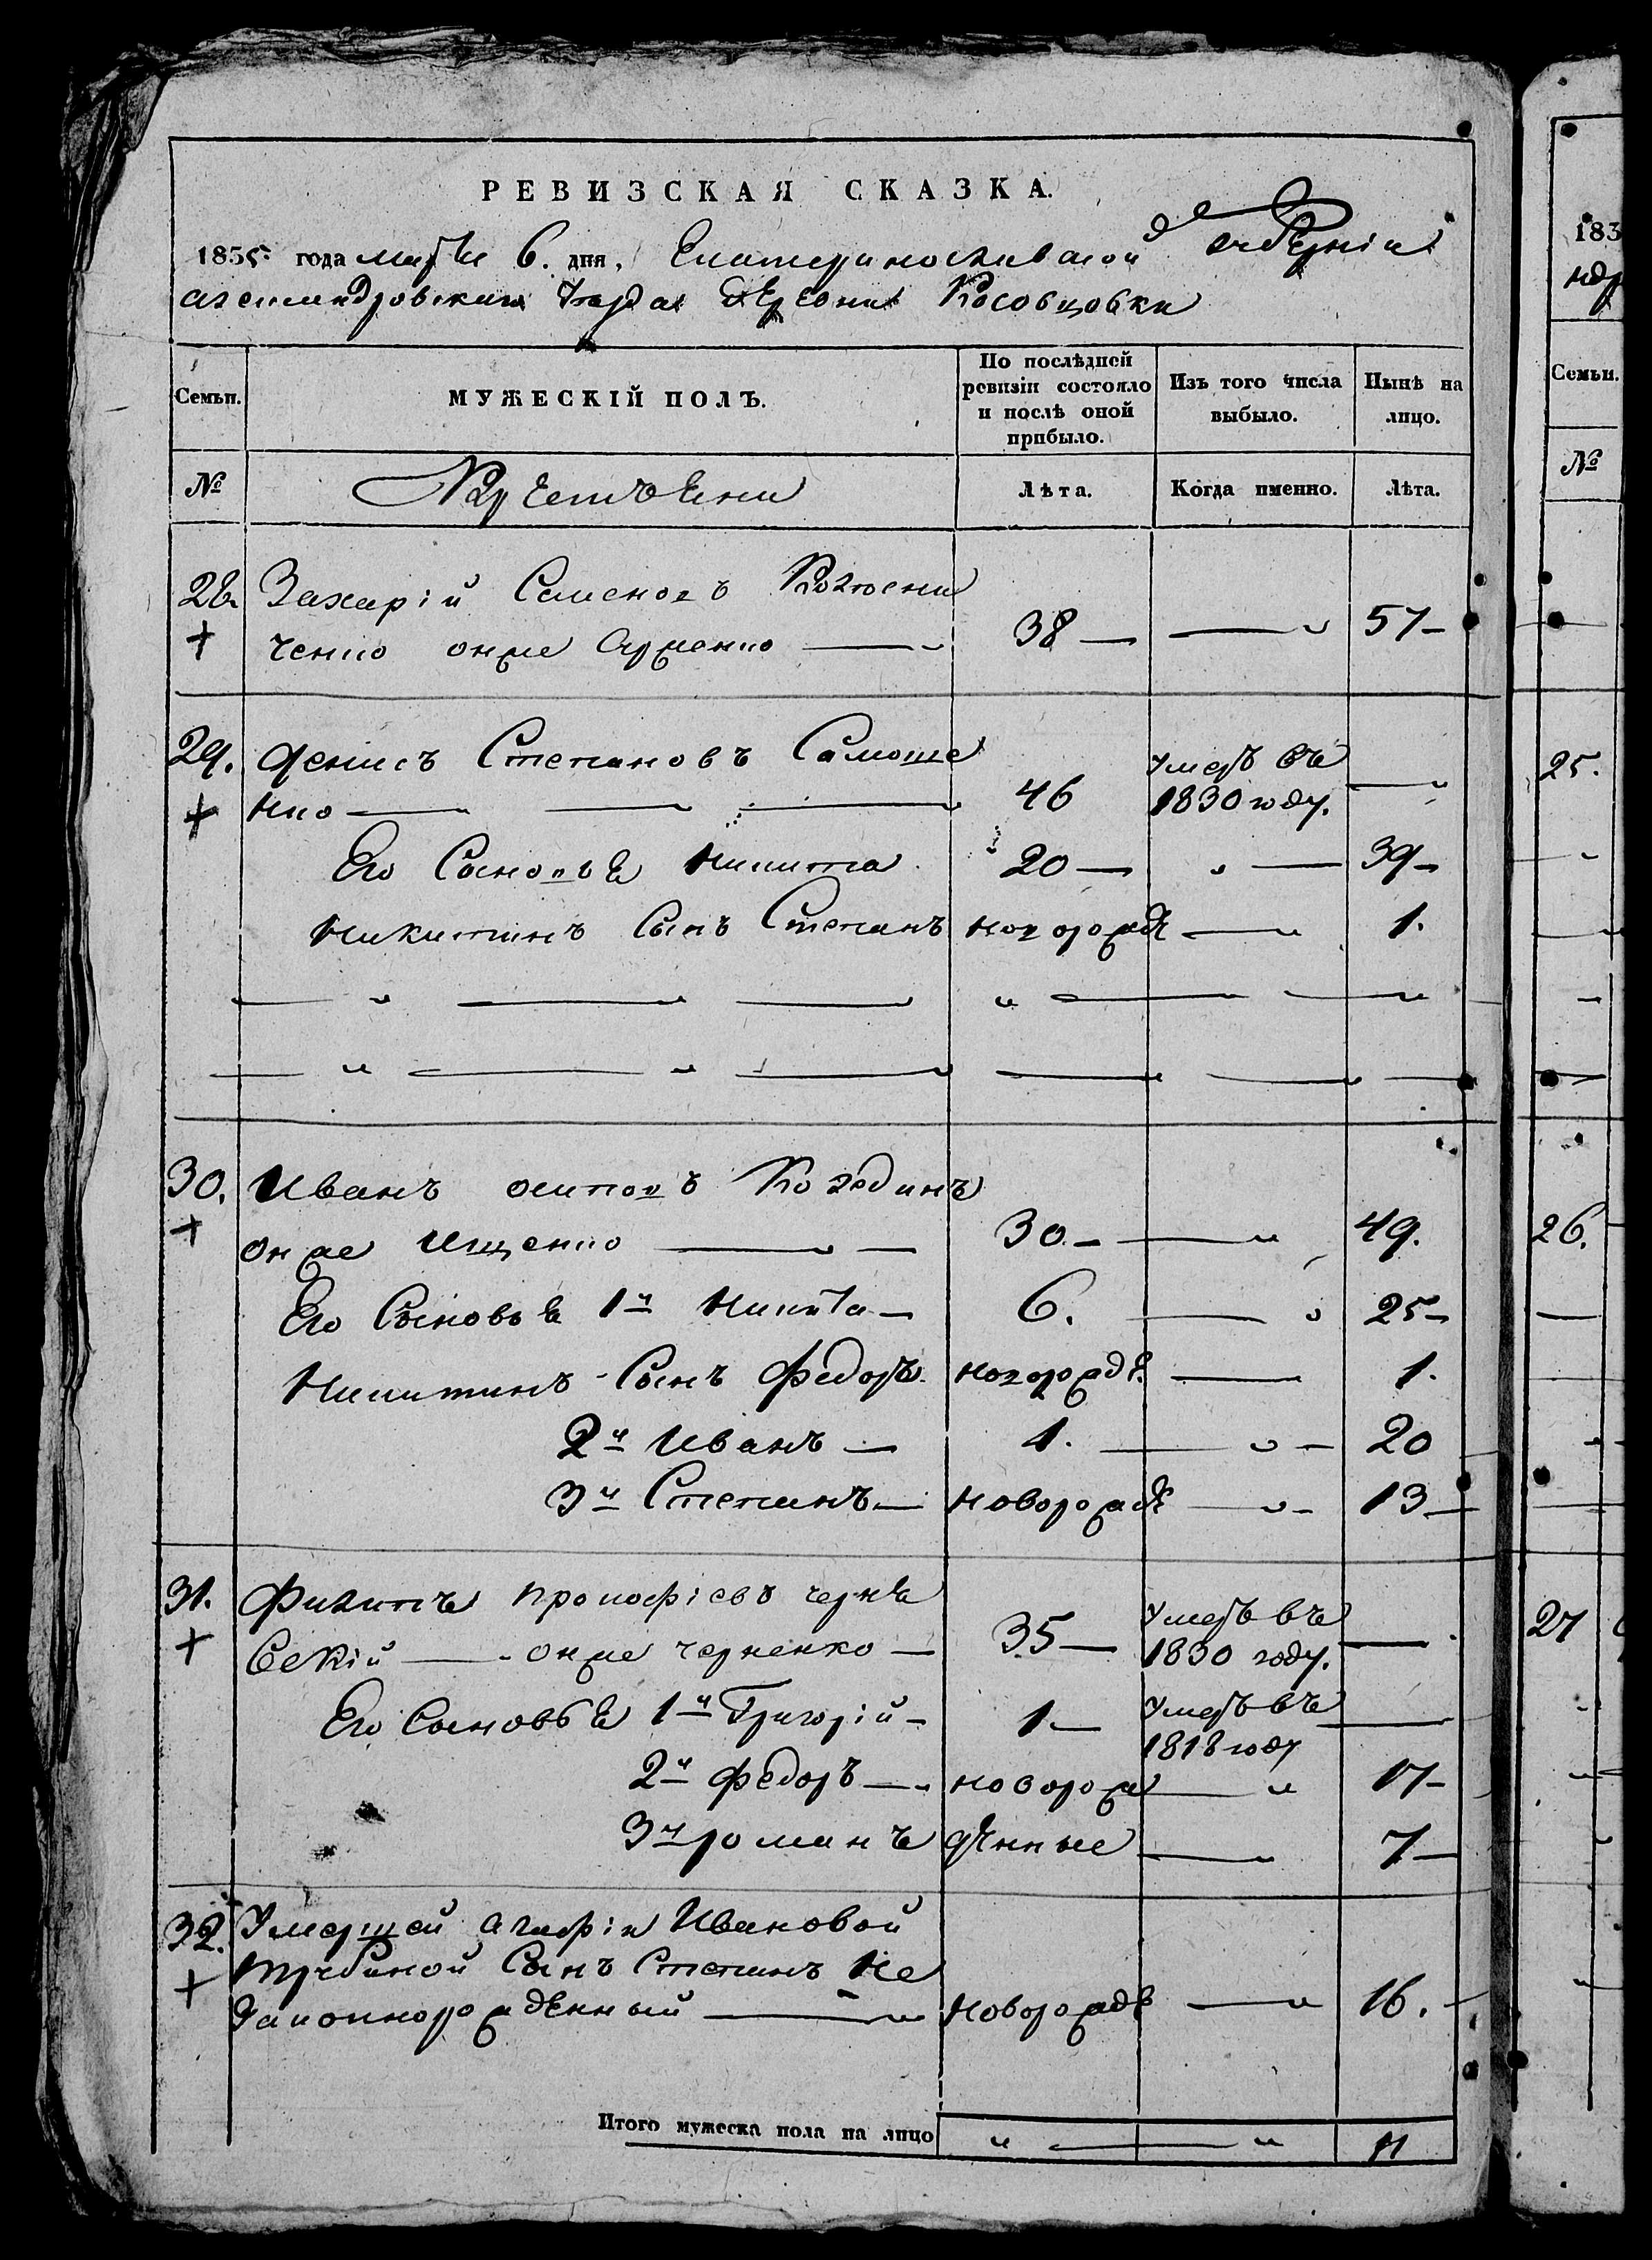 РЕВИЗСКАЯ СКАЗКА.
1835 года марта 6. дня, Екатеринославской губерніи
александровскаго уезда деревни Косовцовки
Семьи.
МУЖЕСКІЙ ПОЛЪ.
По послѣдней ревизіи состояло и послѣ оной прибыло.
Изъ того числа выбыло.
Нынѣ на лицо.
№
Лѣта.
Когда именно.
Лѣта.
28. Захарій Семеновъ
ченко онже 38 — — 57 —
29. Денисъ Степановъ Самоше
нко — 46 умеръ въ 1830 году. —
Его Сыновья Никита 20 — — 39 —
Никитинъ Сынъ Степанъ новорожд — 1.
30. Иванъ осиповъ
онже Ищенко — 30. — — 49.
Его Сыновья 1й Никита — 6. — 25 —
Никитинъ Сынъ Федоръ. новорожде. — 1.
2й Иванъ — 1. — 20
3й Степанъ — новорожде — 13 —
31. Филипъ прокофіевъ черня
вскій — онже черненко — 35 — умеръ въ 1830 году. —
Его Сыновья 1й Григорій — 1 — умеръ въ 1818 году —
2й федоръ — новорож — 17 —
3й романъ денные — 7 —
32. Умершей агафіи Ивановой
Сынъ Степанъ не
законнорожденный — новорожде — 16.
Итого мужеска пола на лицо 11
183
Семьи.
№
25.
26.
27